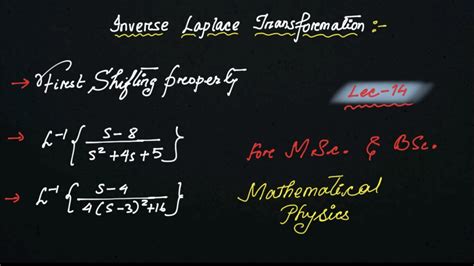 Inverse Laplace Transformation :-
→ First Shifting property
Lec-14
→ L⁻¹{(s-8)/(s²+4s+5)}
For M.Sc. & BSc.
→ L⁻¹{(s-4)/(4(s-3)²+16)}
Mathematical
Physics